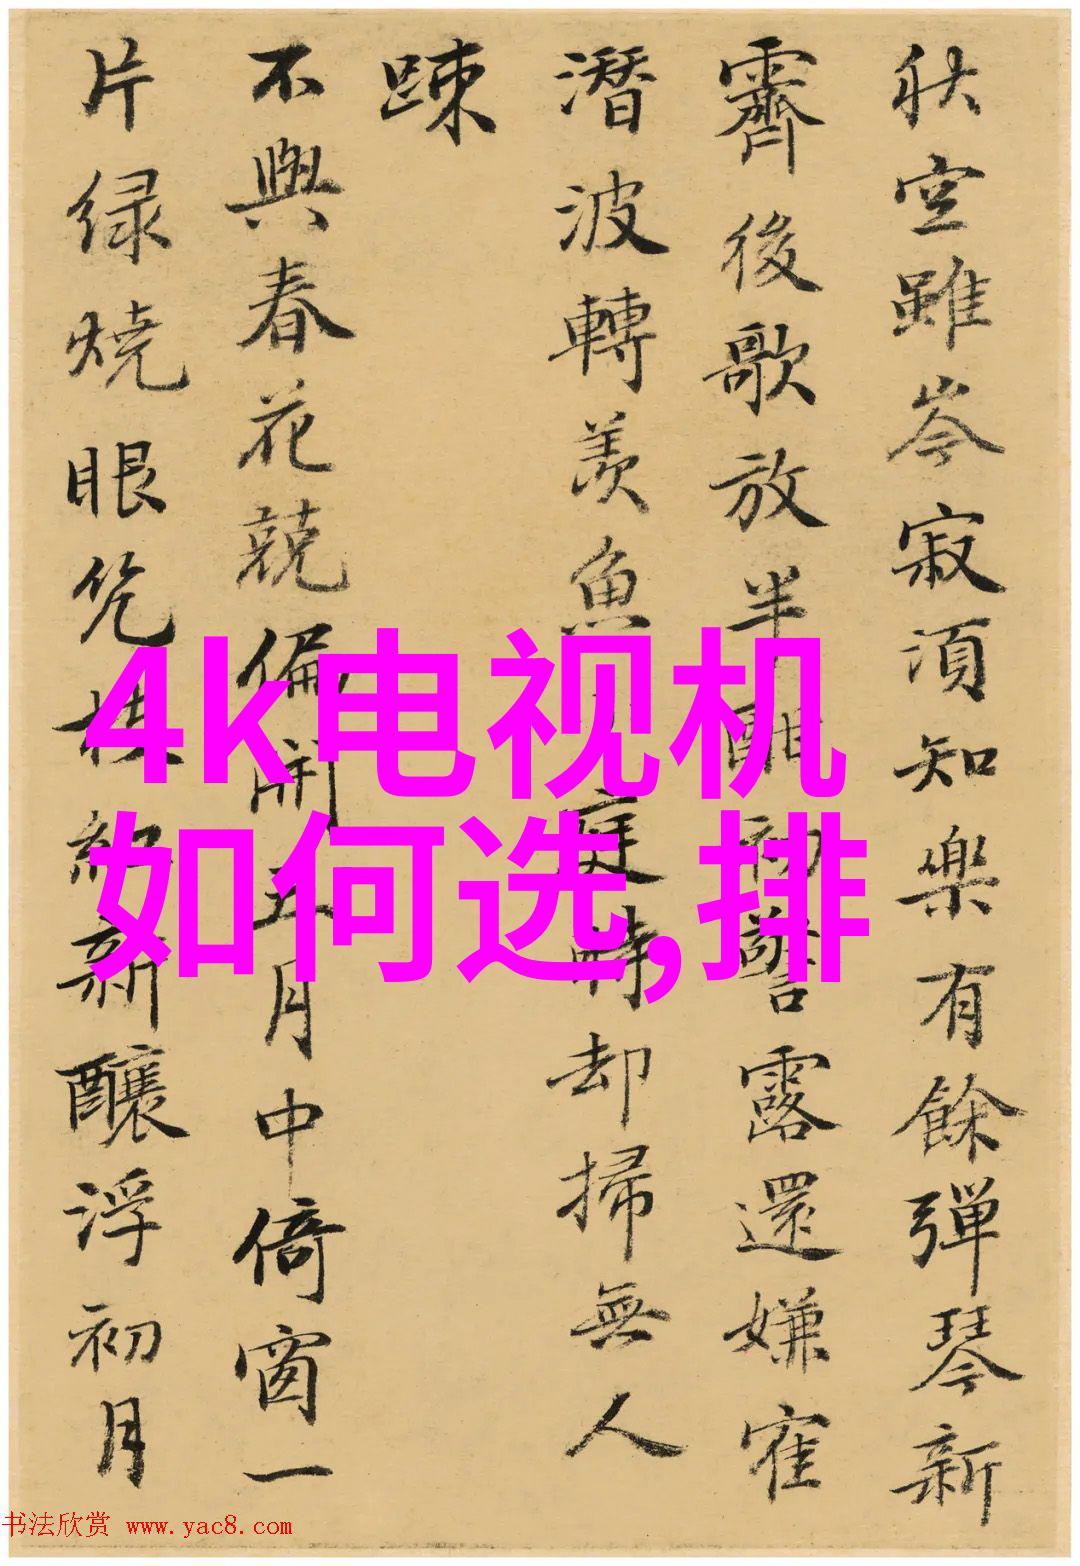 秋空雖岑寂湏知樂有餘彈琴新
霽後歌放半酣初警露還嫌寉
潛波轉羨魚庭時却掃無人
踈
不與春花競偏開五月中倚窗一
片绿燒眼新釀浮初月
4k电视机
如何选,排
书法欣赏 www.yac8.com